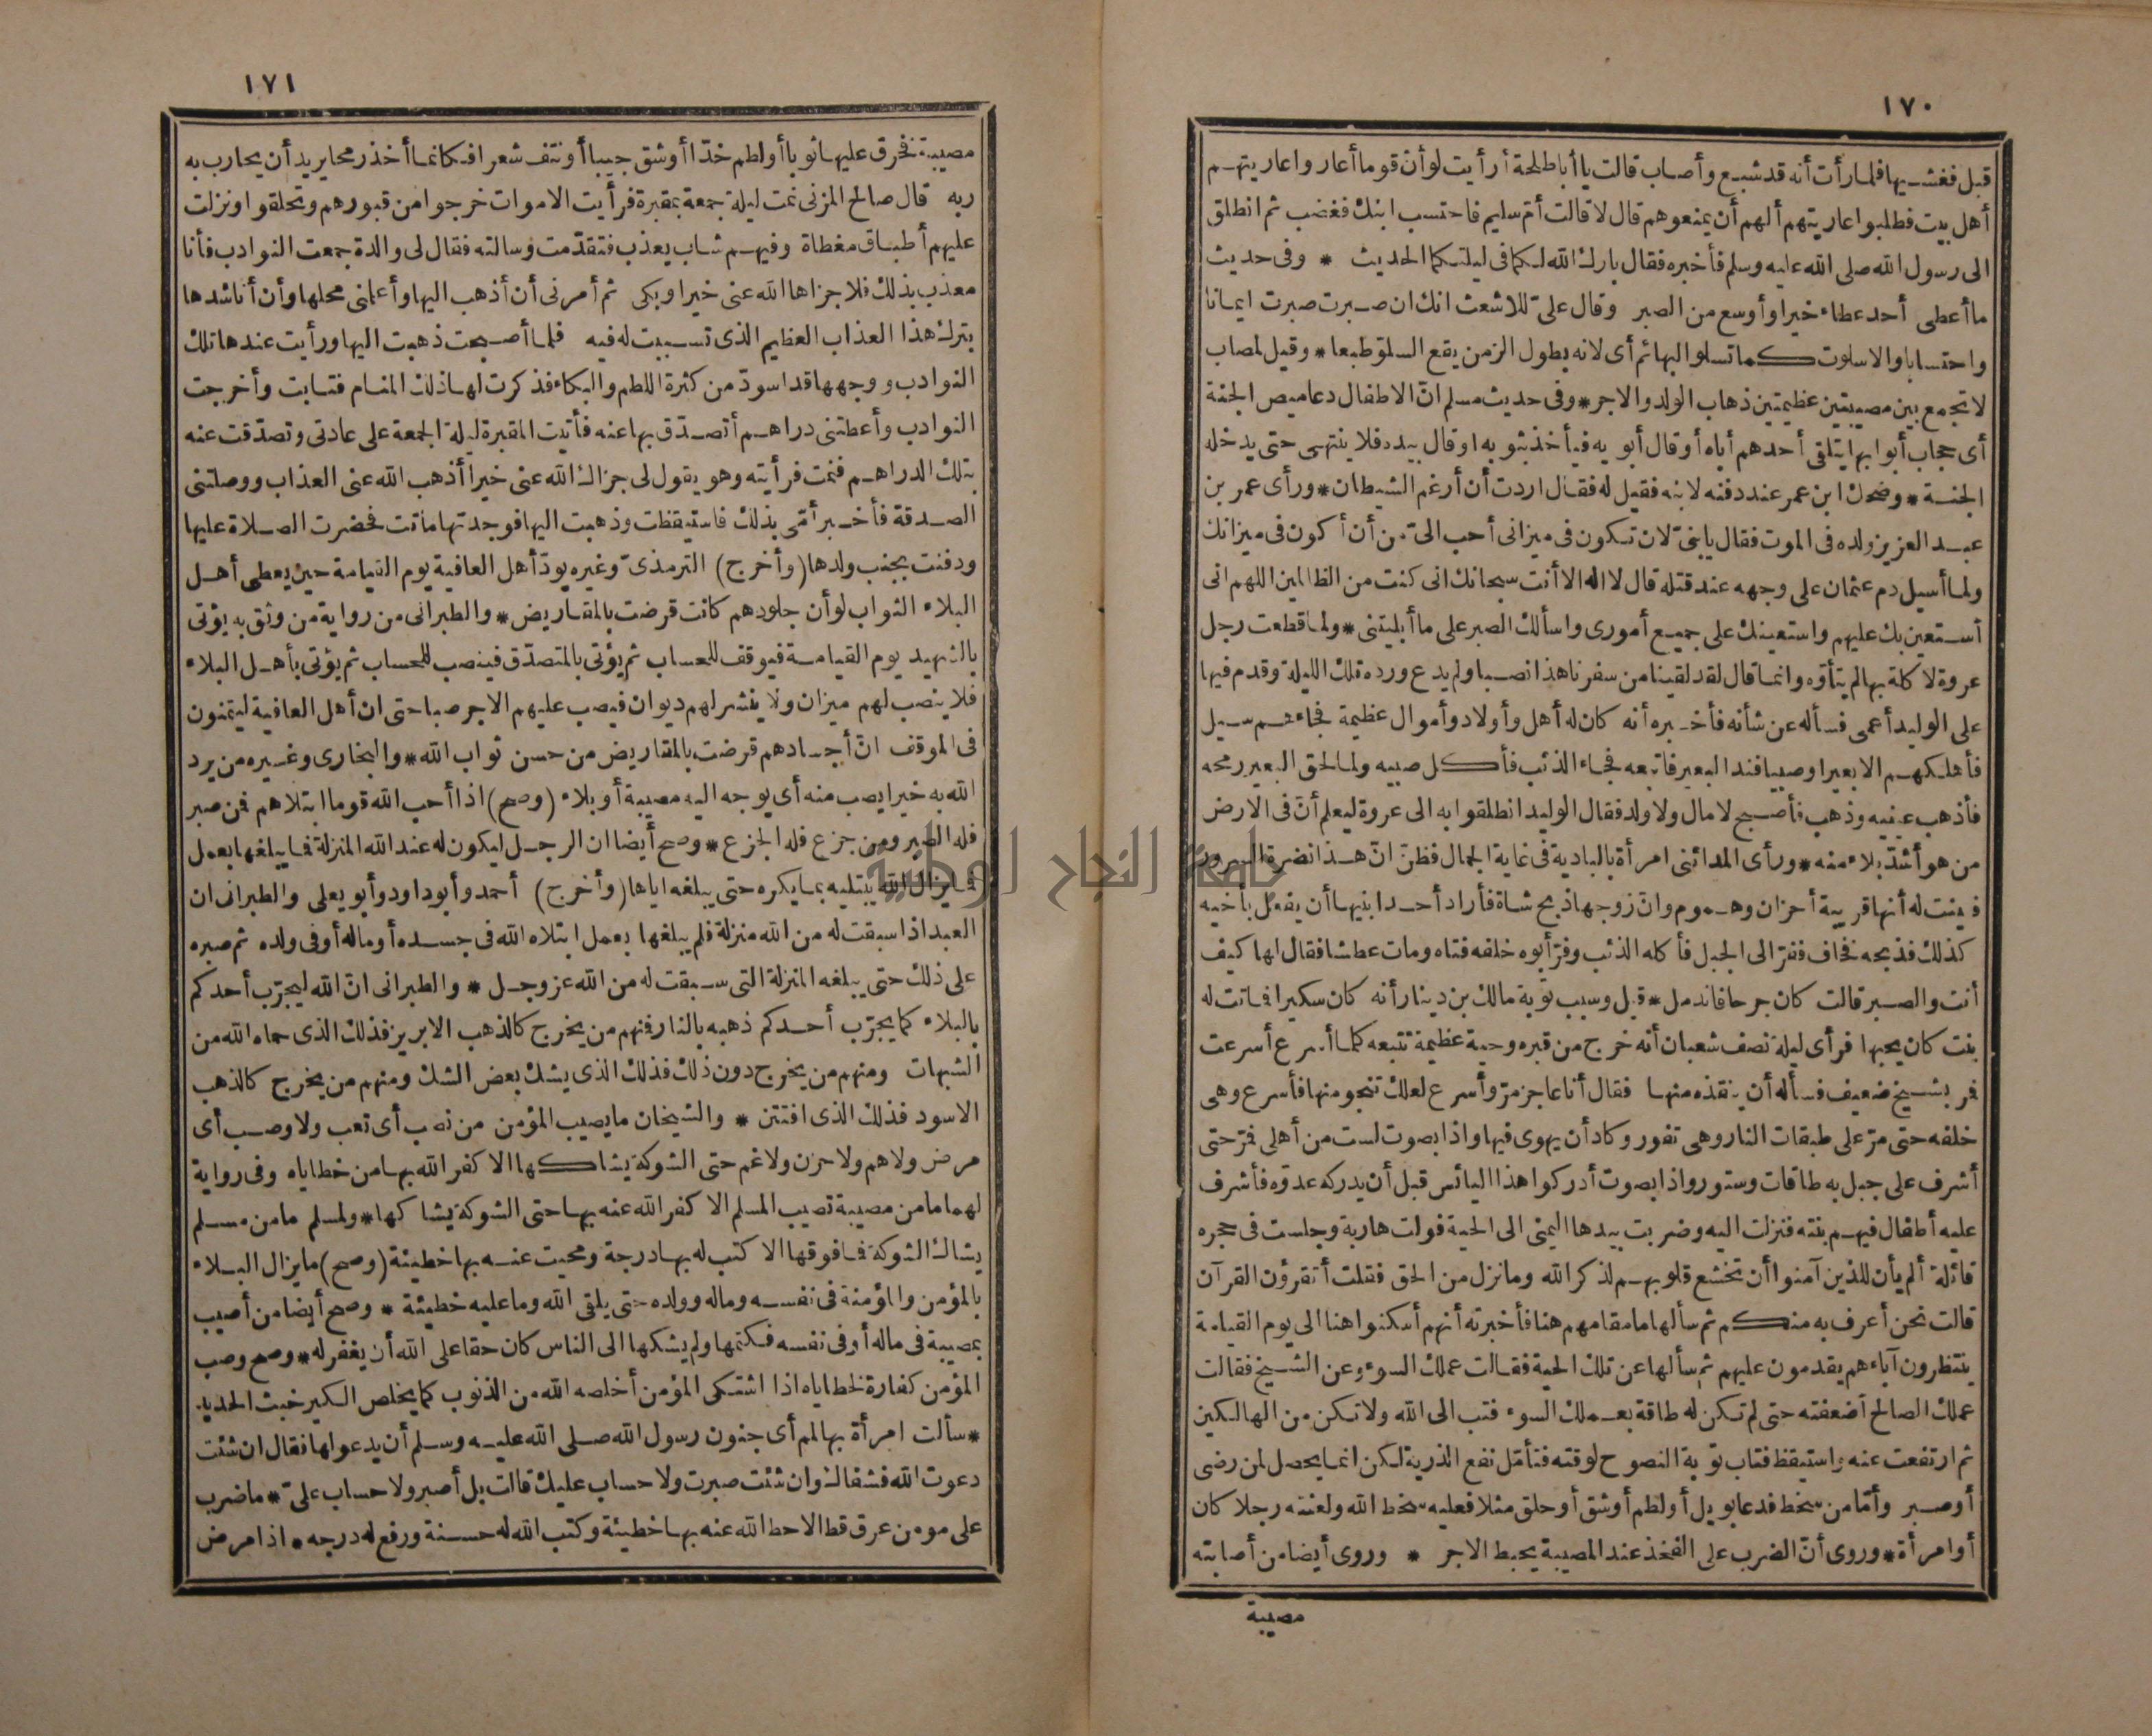 ١٧٠
قبل فغشيها فلما رأت أنه قد شبع وأصاب قالت يا أبا طلحة أرأيت لو أن قوما أعاروا عاريتهم
أهل بيت فطلبوا عاريتهم ألهم أن يمنعوهم قال لا قالت أم سليم فاحتسب ابنك فغضب ثم انطلق
الى رسول الله صلى الله عليه وسلم فأخبره فقال بارك الله لكما في ليلتكما الحديث * وفى حديث
ما أعطى أحد عطاء خيرا وأوسع من الصبر وقال علىّ للاشعث انك ان صبرت صبرت ايمانا
واحتسابا والا سلوت كما تسلو البهائم أى لانه بطول الزمن يقع السلوّ طبعا * وقيل لمصاب
لا تجمع بين مصيبتين عظيمتين ذهاب الولد والاجر * وفى حديث مسلم انّ الاطفال دعاميص الجنة
أى حجاب أبوابها يتلقى أحدهم أباه أو قال أبويه فيأخذ بثوبه او قال بيده فلا ينتهى حتى يدخله
الجنة * وضحك ابن عمر عند دفنه لابنه فقيل له فقال اردت أن أرغم الشيطان * ورأى عمر بن
عبد العزيز ولده فى الموت فقال يا بنىّ لان تكون فى ميزانى أحب الىّ من أن أكون فى ميزانك
ولما أسيل دم عثمان على وجهه عند قتله قال لا اله الا أنت سبحانك انى كنت من الظالمين اللهم انى
أستعين بك عليهم واستعينك على جميع أمورى واسألك الصبر على ما أبليتنى * ولما قطعت رجل
عروة لاكلة بها لم يتأوه وانما قال لقد لقينا من سفرنا هذا نصبا ولم يدع ورده تلك الليلة وقدم فيها
على الوليد أعمى فسأله عن شأنه فأخبره أنه كان له أهل وأولاد وأموال عظيمة فجاءهم سيل
فأهلكهم الا بعيرا وصبيا فند البعير فاتبعه فجاء الذئب فأكل صبيه ولما لحق البعير رمحه
فأذهب عينيه وذهب فأصبح لا مال ولا ولد فقال الوليد انطلقوا به الى عروة ليعلم أنّ فى الارض
من هو أشدّ بلاء منه * ورأى المدائنى امرأة بالبادية فى غاية الجمال فظنّ انّ هذا نضرة السرور
فبينت له أنها قرينة أحزان وهموم وانّ زوجها ذبح شاة فأراد أحد ابنيها أن يفعل بأخيه
كذلك فذبحه فخاف ففرّ الى الجبل فأكله الذئب وفرّ أبوه خلفه فتاه ومات عطشا فقال لها كيف
أنت والصبر قالت كان جرحا فاندمل * قيل وسبب توبة مالك بن دينار أنه كان سكيرا فماتت له
بنت كان يحبها فرأى ليلة نصف شعبان أنه خرج من قبره وحية عظيمة تتبعه كلما أسرع أسرعت
فمر بشيخ ضعيف فسأله أن ينقذه منها فقال أنا عاجز مرّ وأسرع لعلك تنجو منها فأسرع وهى
خلفه حتى مرّ على طبقات النار وهى تفور وكاد أن يهوى فيها واذا بصوت لست من أهلى فمرّ حتى
أشرف على جبل به طاقات وستور واذا بصوت أدركوا هذا اليائس قبل أن يدركه عدوّه فأشرف
عليه أطفال فيهم بنته فنزلت اليه وضربت بيدها اليمنى الى الحية فولت هاربة وجلست فى حجره
قائلة ألم يأن للذين آمنوا أن تخشع قلوبهم لذكر الله وما نزل من الحق فقلت أتقرؤن القرآن
قالت نحن أعرف به منكم ثم سألها ما مقامهم هنا فأخبرته أنهم أسكنوا هنا الى يوم القيامة
ينتظرون آباءهم يقدمون عليهم ثم سألها عن تلك الحية فقالت عملك السوء وعن الشيخ فقالت
عملك الصالح أضعفته حتى لم تكن له طاقة بعملك السوء فتب الى الله ولا تكن من الهالكين
ثم ارتفعت عنه واستيقظ فتاب توبة النصوح لوقته فتأمّل نفع الذرية لكن انما يحصل لمن رضى
أو صبر وأمّا من سخط فدعا بويل أو لطم أو شق أو حلق مثلا فعليه سخط الله ولعنته رجلا كان
أو امرأة * وروى أنّ الضرب على الفخذ عند المصيبة يحبط الاجر * وروى أيضا من أصابته
مصيبة
١٧١
مصيبة فخرق عليها ثوبا أو لطم خدّا أو شق جيبا أو نتف شعرا فكانما أخذ رمحا يريد أن يحارب به
ربه قال صالح المزنى نمت ليلة جمعة بمقبرة فرأيت الاموات خرجوا من قبورهم وتحلقوا ونزلت
عليهم أطباق مغطاة وفيهم شاب يعذب فتقدّمت وسالته فقال لى والدة جمعت النوادب فأنا
معذب بذلك فلا جزاها الله عنى خيرا وبكى ثم أمرنى أن أذهب اليها وأعلمنى محلها وأن أناشدها
بترك هذا العذاب العظيم الذى تسببت له فيه فلما أصبحت ذهبت اليها ورأيت عندها تلك
النوادب ووجهها قد اسودّ من كثرة اللطم والبكاء فذكرت لها ذلك المنام فتابت وأخرجت
النوادب وأعطتنى دراهم أتصدّق بها عنه فأتيت المقبرة ليلة الجمعة على عادتى وتصدّقت عنه
بتلك الدراهم فنمت فرأيته وهو يقول لى جزاك الله عنى خيرا أذهب الله عنى العذاب ووصلتنى
الصدقة فأخبر أمّى بذلك فاستيقظت وذهبت اليها فوجدتها ماتت فحضرت الصلاة عليها
ودفنت بجنب ولدها (وأخرج) الترمذىّ وغيره يودّ أهل العافية يوم القيامة حين يعطى أهل
البلاء الثواب لو أن جلودهم كانت قرضت بالمقاريض * والطبرانى من رواية من وثق به يؤتى
بالشهيد يوم القيامة فيوقف للحساب ثم يؤتى بالمتصدّق فينصب للحساب ثم يؤتى بأهل البلاء
فلا ينصب لهم ميزان ولا ينشر لهم ديوان فيصب عليهم الاجر صبا حتى ان أهل العافية ليتمنون
فى الموقف انّ أجسادهم قرضت بالمقاريض من حسن ثواب الله * والبخارى وغيره من يرد
الله به خيرا يصب منه أى يوجه اليه مصيبة أو بلاء (وصح) اذا أحب الله قوما ابتلاهم فمن صبر
فله الصبر ومن جزع فله الجزع * وصح أيضا ان الرجل ليكون له عند الله المنزلة فما يبلغها بعمل
فما يزال الله يبتليه بما يكره حتى يبلغه اياها (وأخرج) أحمد وأبو داود وأبو يعلى والطبرانى ان
العبد اذا سبقت له من الله منزلة فلم يبلغها بعمل ابتلاه الله فى جسده أو ماله أو فى ولده ثم صبره
على ذلك حتى يبلغه المنزلة التى سبقت له من الله عز وجل * والطبرانى انّ الله ليجرّب أحدكم
بالبلاء كما يجرّب أحدكم ذهبه بالنار فمنهم من يخرج كالذهب الابريز فذلك الذى حماه الله من
الشبهات ومنهم من يخرج دون ذلك فذلك الذى يشك بعض الشك ومنهم من يخرج كالذهب
الاسود فذلك الذى افتتن * والشيخان ما يصيب المؤمن من نصب أى تعب ولا وصب أى
مرض ولا هم ولا حزن ولا غم حتى الشوكة يشاكها الا كفر الله بها من خطاياه وفى رواية
لهما ما من مصيبة تصيب المسلم الا كفر الله عنه بها حتى الشوكة يشاكها * ولمسلم ما من مسلم
يشاك الشوكة فما فوقها الا كتب له بها درجة ومحيت عنه بها خطيئة (وصح) ما يزال البلاء
بالمؤمن والمؤمنة فى نفسه وماله وولده حتى يلقى الله وما عليه خطيئة * وصح أيضا من أصيب
بمصيبة فى ماله أو فى نفسه فكتمها ولم يشكها الى الناس كان حقا على الله أن يغفر له * وصح وصب
المؤمن كفارة لخطاياه اذا اشتكى المؤمن أخلصه الله من الذنوب كما يخلص الكير خبث الحديد
* سألت امرأة بها لمم أى جنون رسول الله صلى الله عليه وسلم أن يدعو لها فقال ان شئت
دعوت الله فشفاك وان شئت صبرت ولا حساب عليك قالت بل أصبر ولا حساب علىّ * ما ضرب
على مومن عرق قط الا حط الله عنه بها خطيئة وكتب الله له حسنة ورفع له درجة * اذا مرض
جامعة النجاح الوطنية